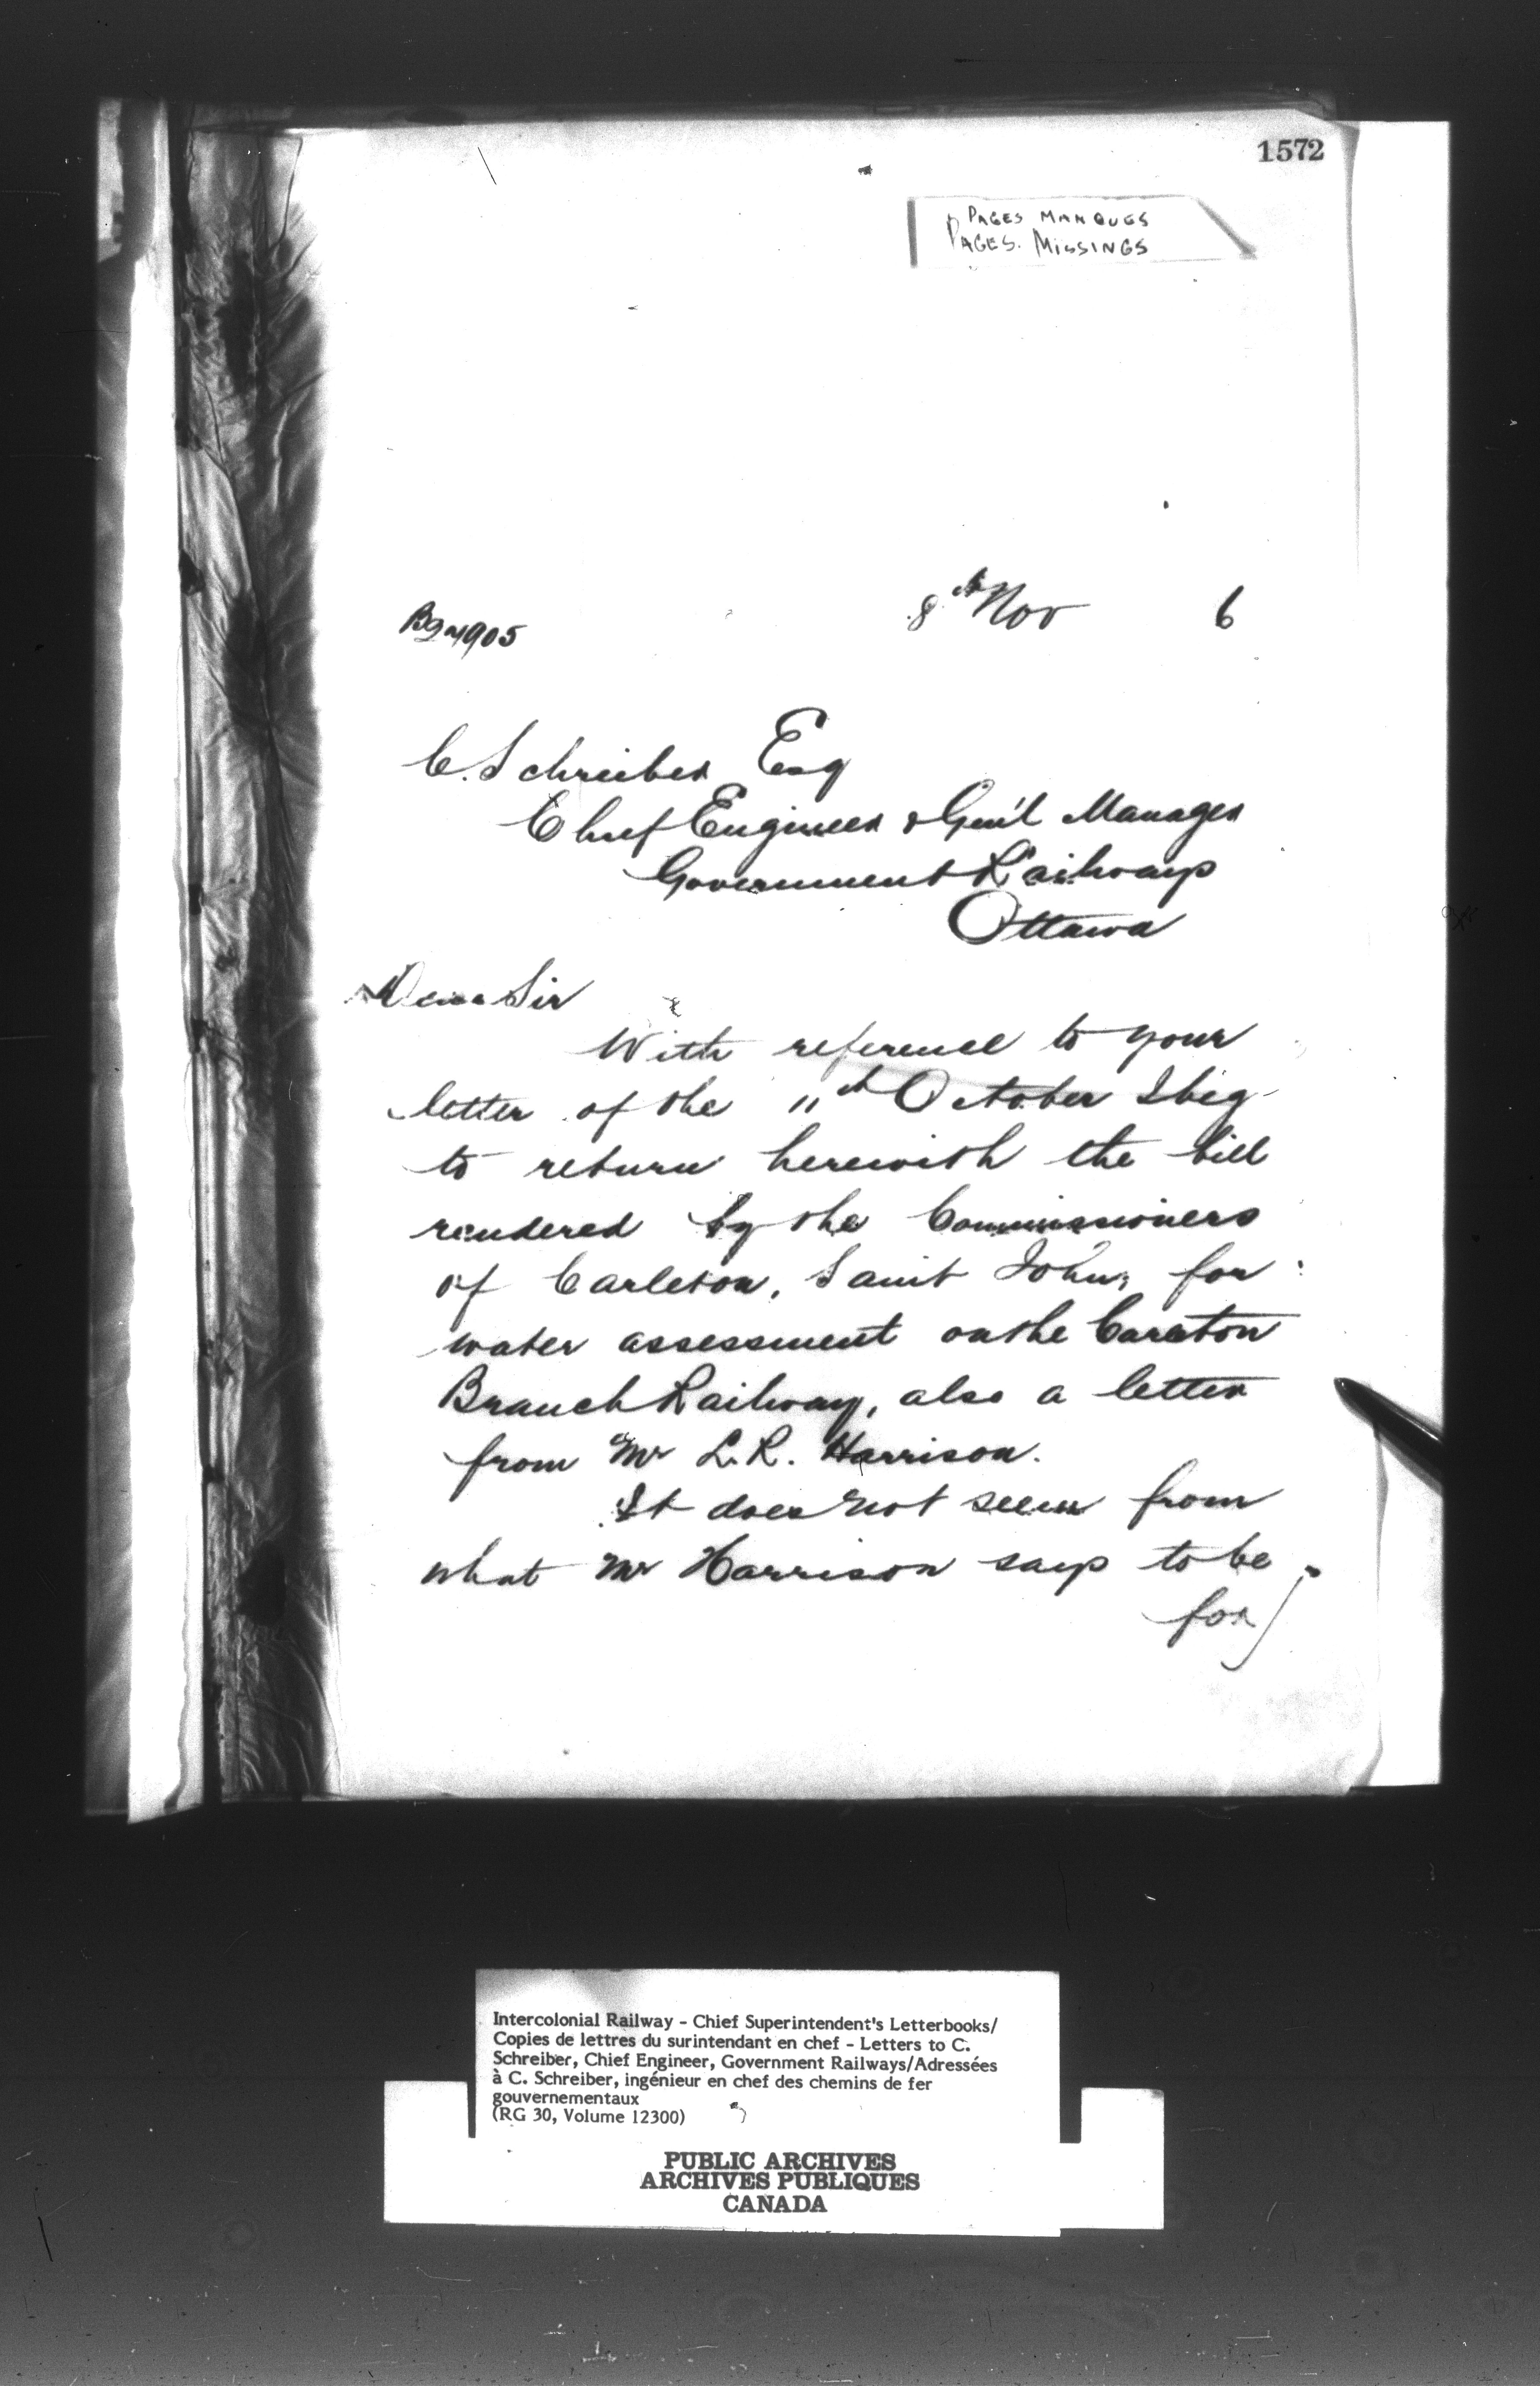 1572
PAGES MANQUES
PAGES. MISSINGS
8th Nov 6
C. Schreiber Esq
Chief Engineer & Gen'l Manager
Government Railways
Ottawa
Dear Sir
With reference to your
letter of the 11th October I beg
to return herewith the bill
rendered by the Commissioners
of Carleton, Saint John, for
water assessment on the Careton
Branch Railway, also a letter
from Mr L.R. Harrison.
It does not seem from
what Mr Harrison says to be
for/
Intercolonial Railway - Chief Superintendent's Letterbooks/
Copies de lettres du surintendant en chef - Letters to C.
Schreiber, Chief Engineer, Government Railways/Adressées
à C. Schreiber, ingénieur en chef des chemins de fer
gouvernementaux
(RG 30, Volume 12300)
PUBLIC ARCHIVES
ARCHIVES PUBLIQUES
CANADA